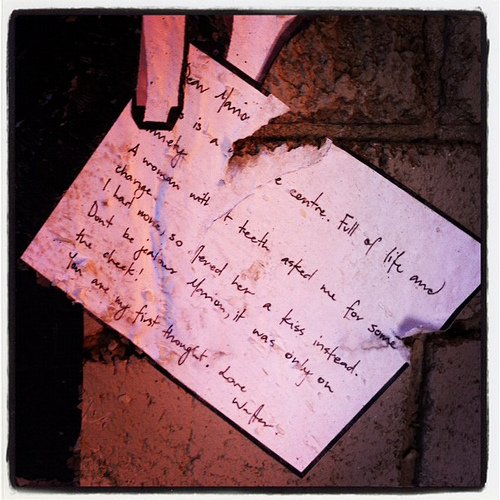 Dear Marion
is a e centre. Full of life and
A woman with t teeth asked me for some
change.
I had none, so fered her a kiss instead.
Dont be jealous Marion, it was only on
the cheek!
You are my first thought. Love
Walter.